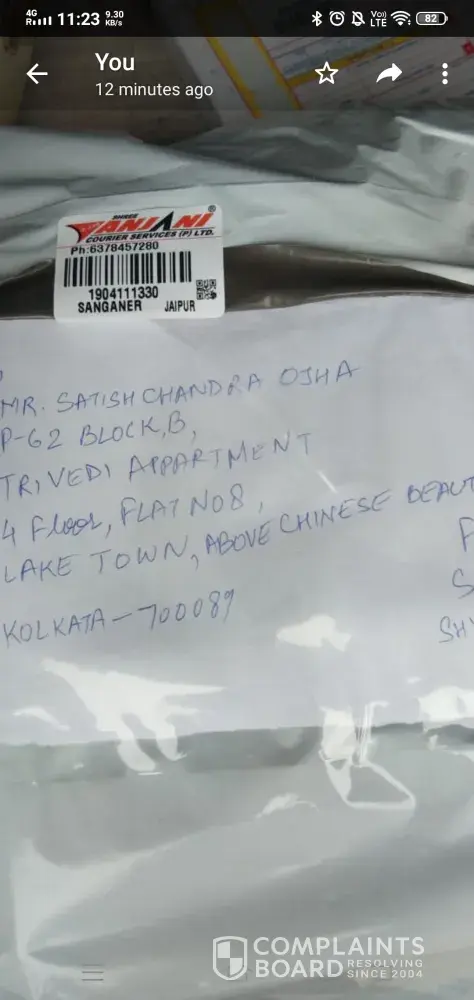 4G
11:23
9.30
KB/s
Vo))
LTE
82
You
12 minutes ago
SHREE
ANJANI
COURIER SERVICES (P) LTD.
Ph:6378457280
1904111330
SANGANER JAIPUR
MR. SATISH CHANDRA OJHA
P-62 BLOCK,B,
TRIVEDI APPARTMENT
4 Floor, FLAT NO8,
LAKE TOWN, ABOVE CHINESE BEAUT
KOLKATA-700089
F
S
SHY
COMPLAINTS
BOARD RESOLVING
SINCE 2004